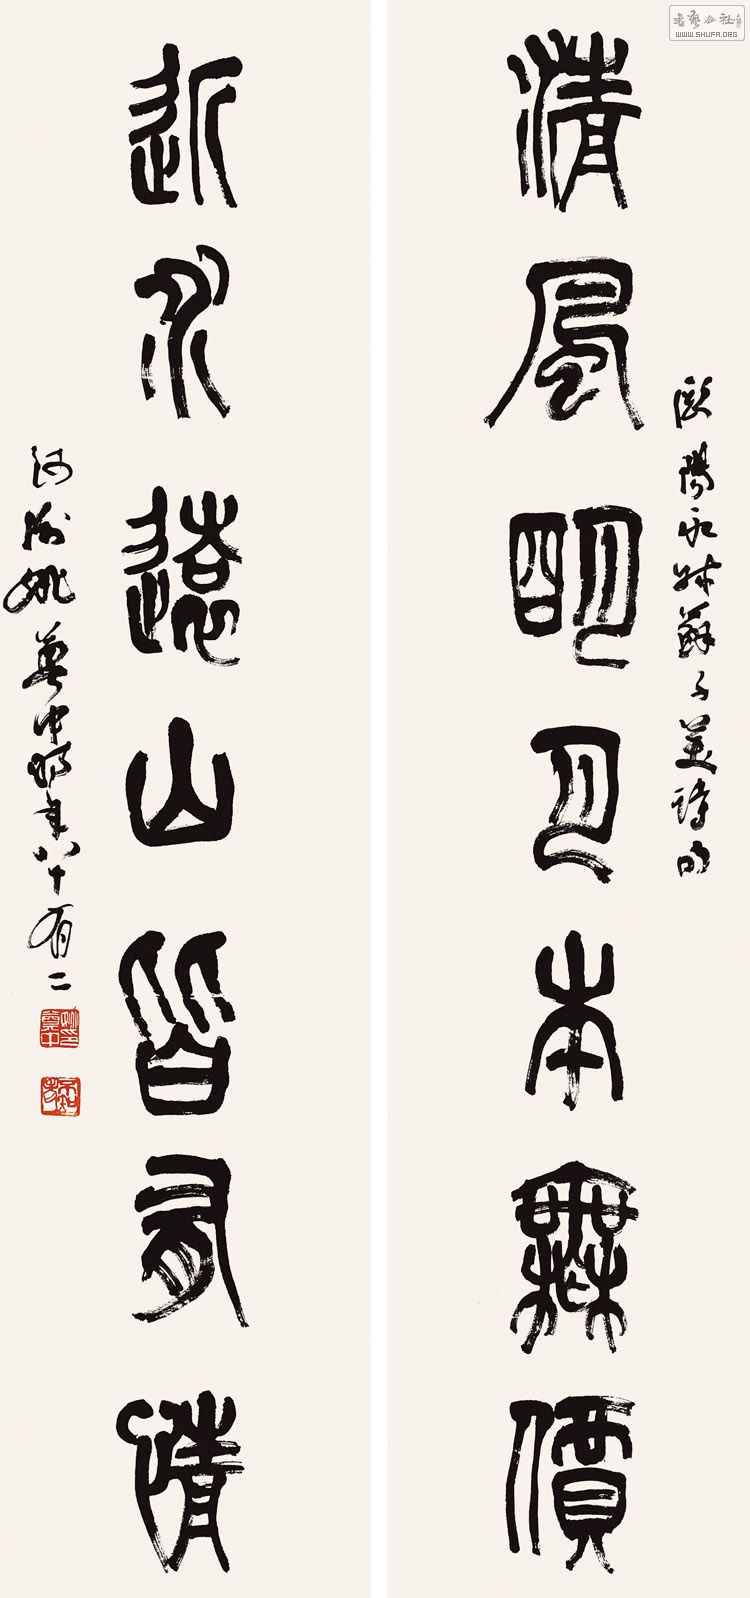 歐陽永叔蘇子美詩句
清風明月本無價
近水遠山皆有情
河汾姚奠中時年八十有二
書藝公社
WWW.SHUFA.ORG